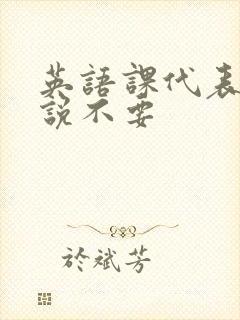 英語課代表
說不要
於斌芳